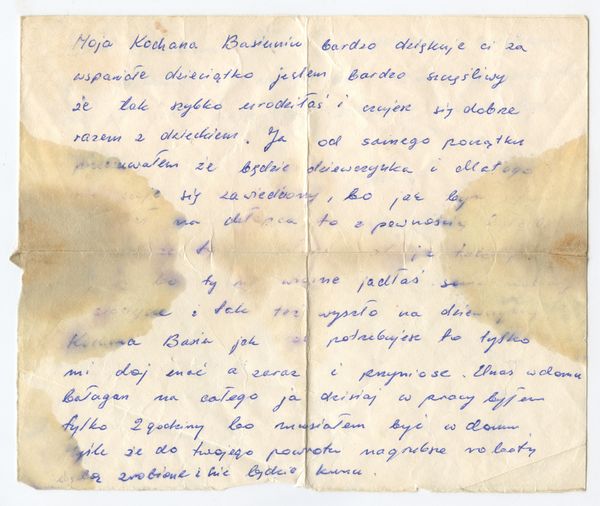 Moja Kochana Basieniu bardzo dziękuje ci za
wspaniałe dzieciątko jestem bardzo szczęśliwy
że tak szybko urodziłaś i czujesz się dobrze
razem z dzieckiem. Ja od samego początku
że będzie dziewczynka i dlatego
się zawiedziony, bo jak bym
na chłopca to z pewnością
bo ty jadłaś
i tak też wyszło na
Kochana Basiu jak potrzebujesz to tylko
mi daj znać a zaraz i przyniose. U nas w domu
bałagan na całego ja dzisiaj w pracy byłem
tylko 2 godziny bo musiałem być w domu.
że do twojego powrotu nagrubsze roboty
zrobione i nie będzie kurzu.